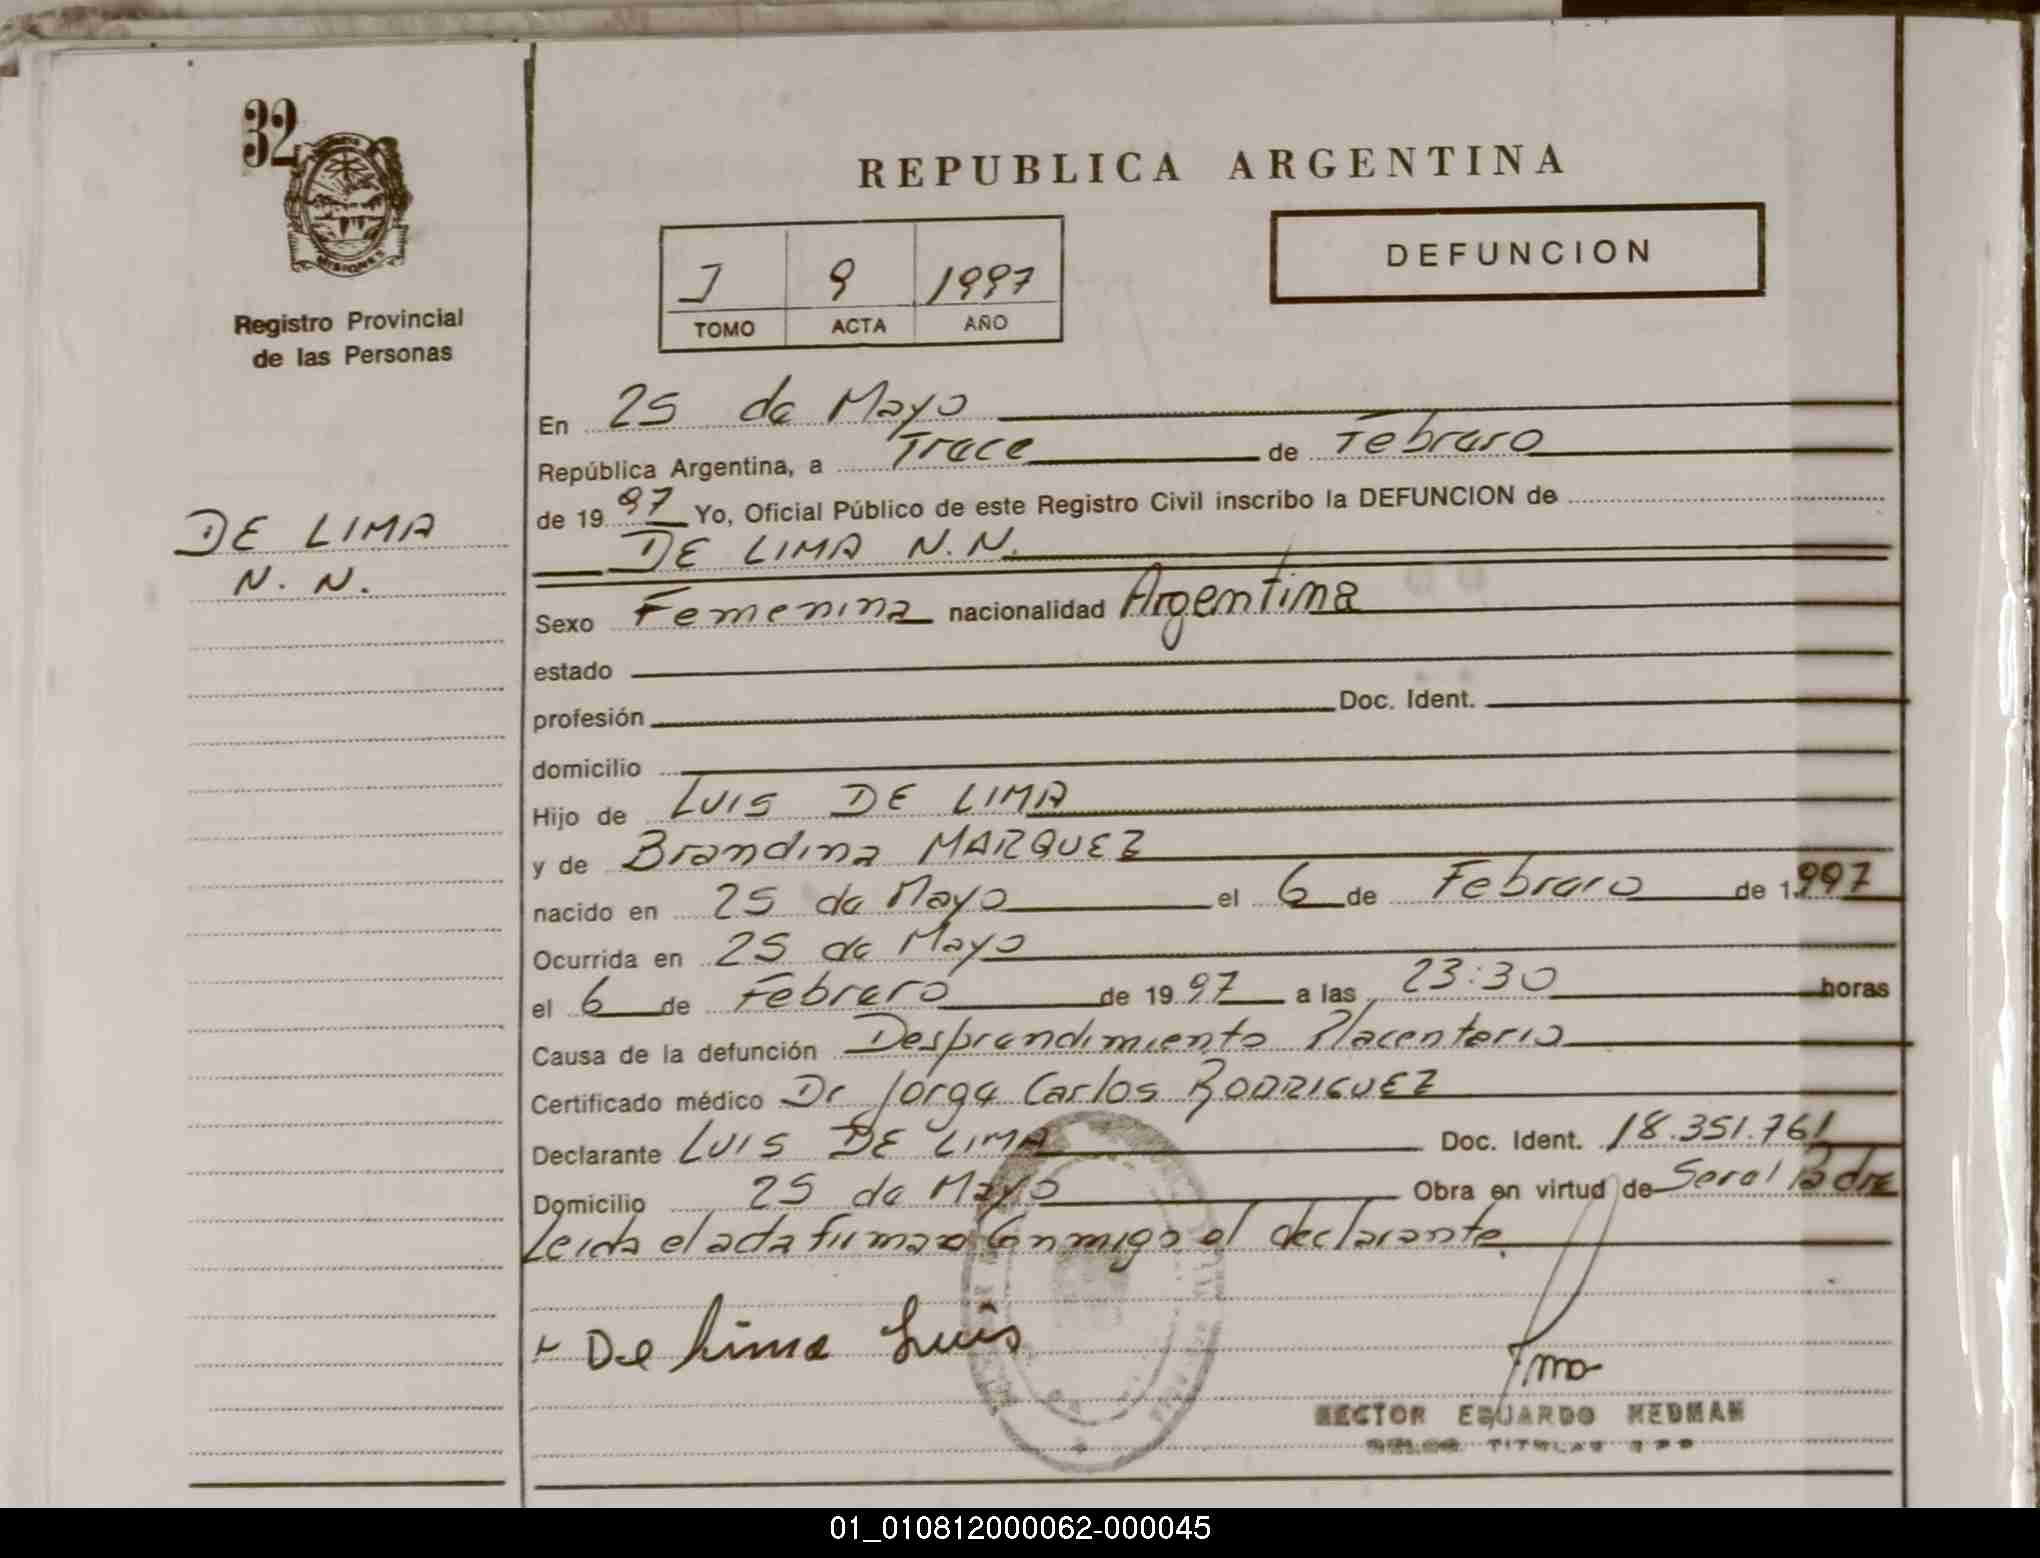 32
MISIONES
Registro Provincial
de las Personas
DE LIMA
N. N.
REPUBLICA ARGENTINA
J 9 1997
TOMO ACTA AÑO
DEFUNCION
En 25 de Mayo
República Argentina, a Trece de Febrero
de 19 97 Yo, Oficial Público de este Registro Civil inscribo la DEFUNCION de
DE LIMA N.N.
Sexo Femenina nacionalidad Argentina
estado
profesión Doc. Ident.
domicilio
Hijo de LUIS DE LIMA
y de Brandina MARQUEZ
nacido en 25 de Mayo el 6 de Febrero de 1.997
Ocurrida en 25 de Mayo
el 6 de Febrero de 19 97 a las 23:30 horas
Causa de la defunción Desprendimiento Placenterio
Certificado médico Dr Jorge Carlos RODRIGUEZ
Declarante LUIS DE LIMA Doc. Ident. 18.351.761
Domicilio 25 de Mayo Obra en virtud de Ser el Padre
Leida el acta firman Conmigo el declarante.
De Lima Luis
HECTOR EDUARDO NEDMAN
TITULAR
01_010812000062-000045